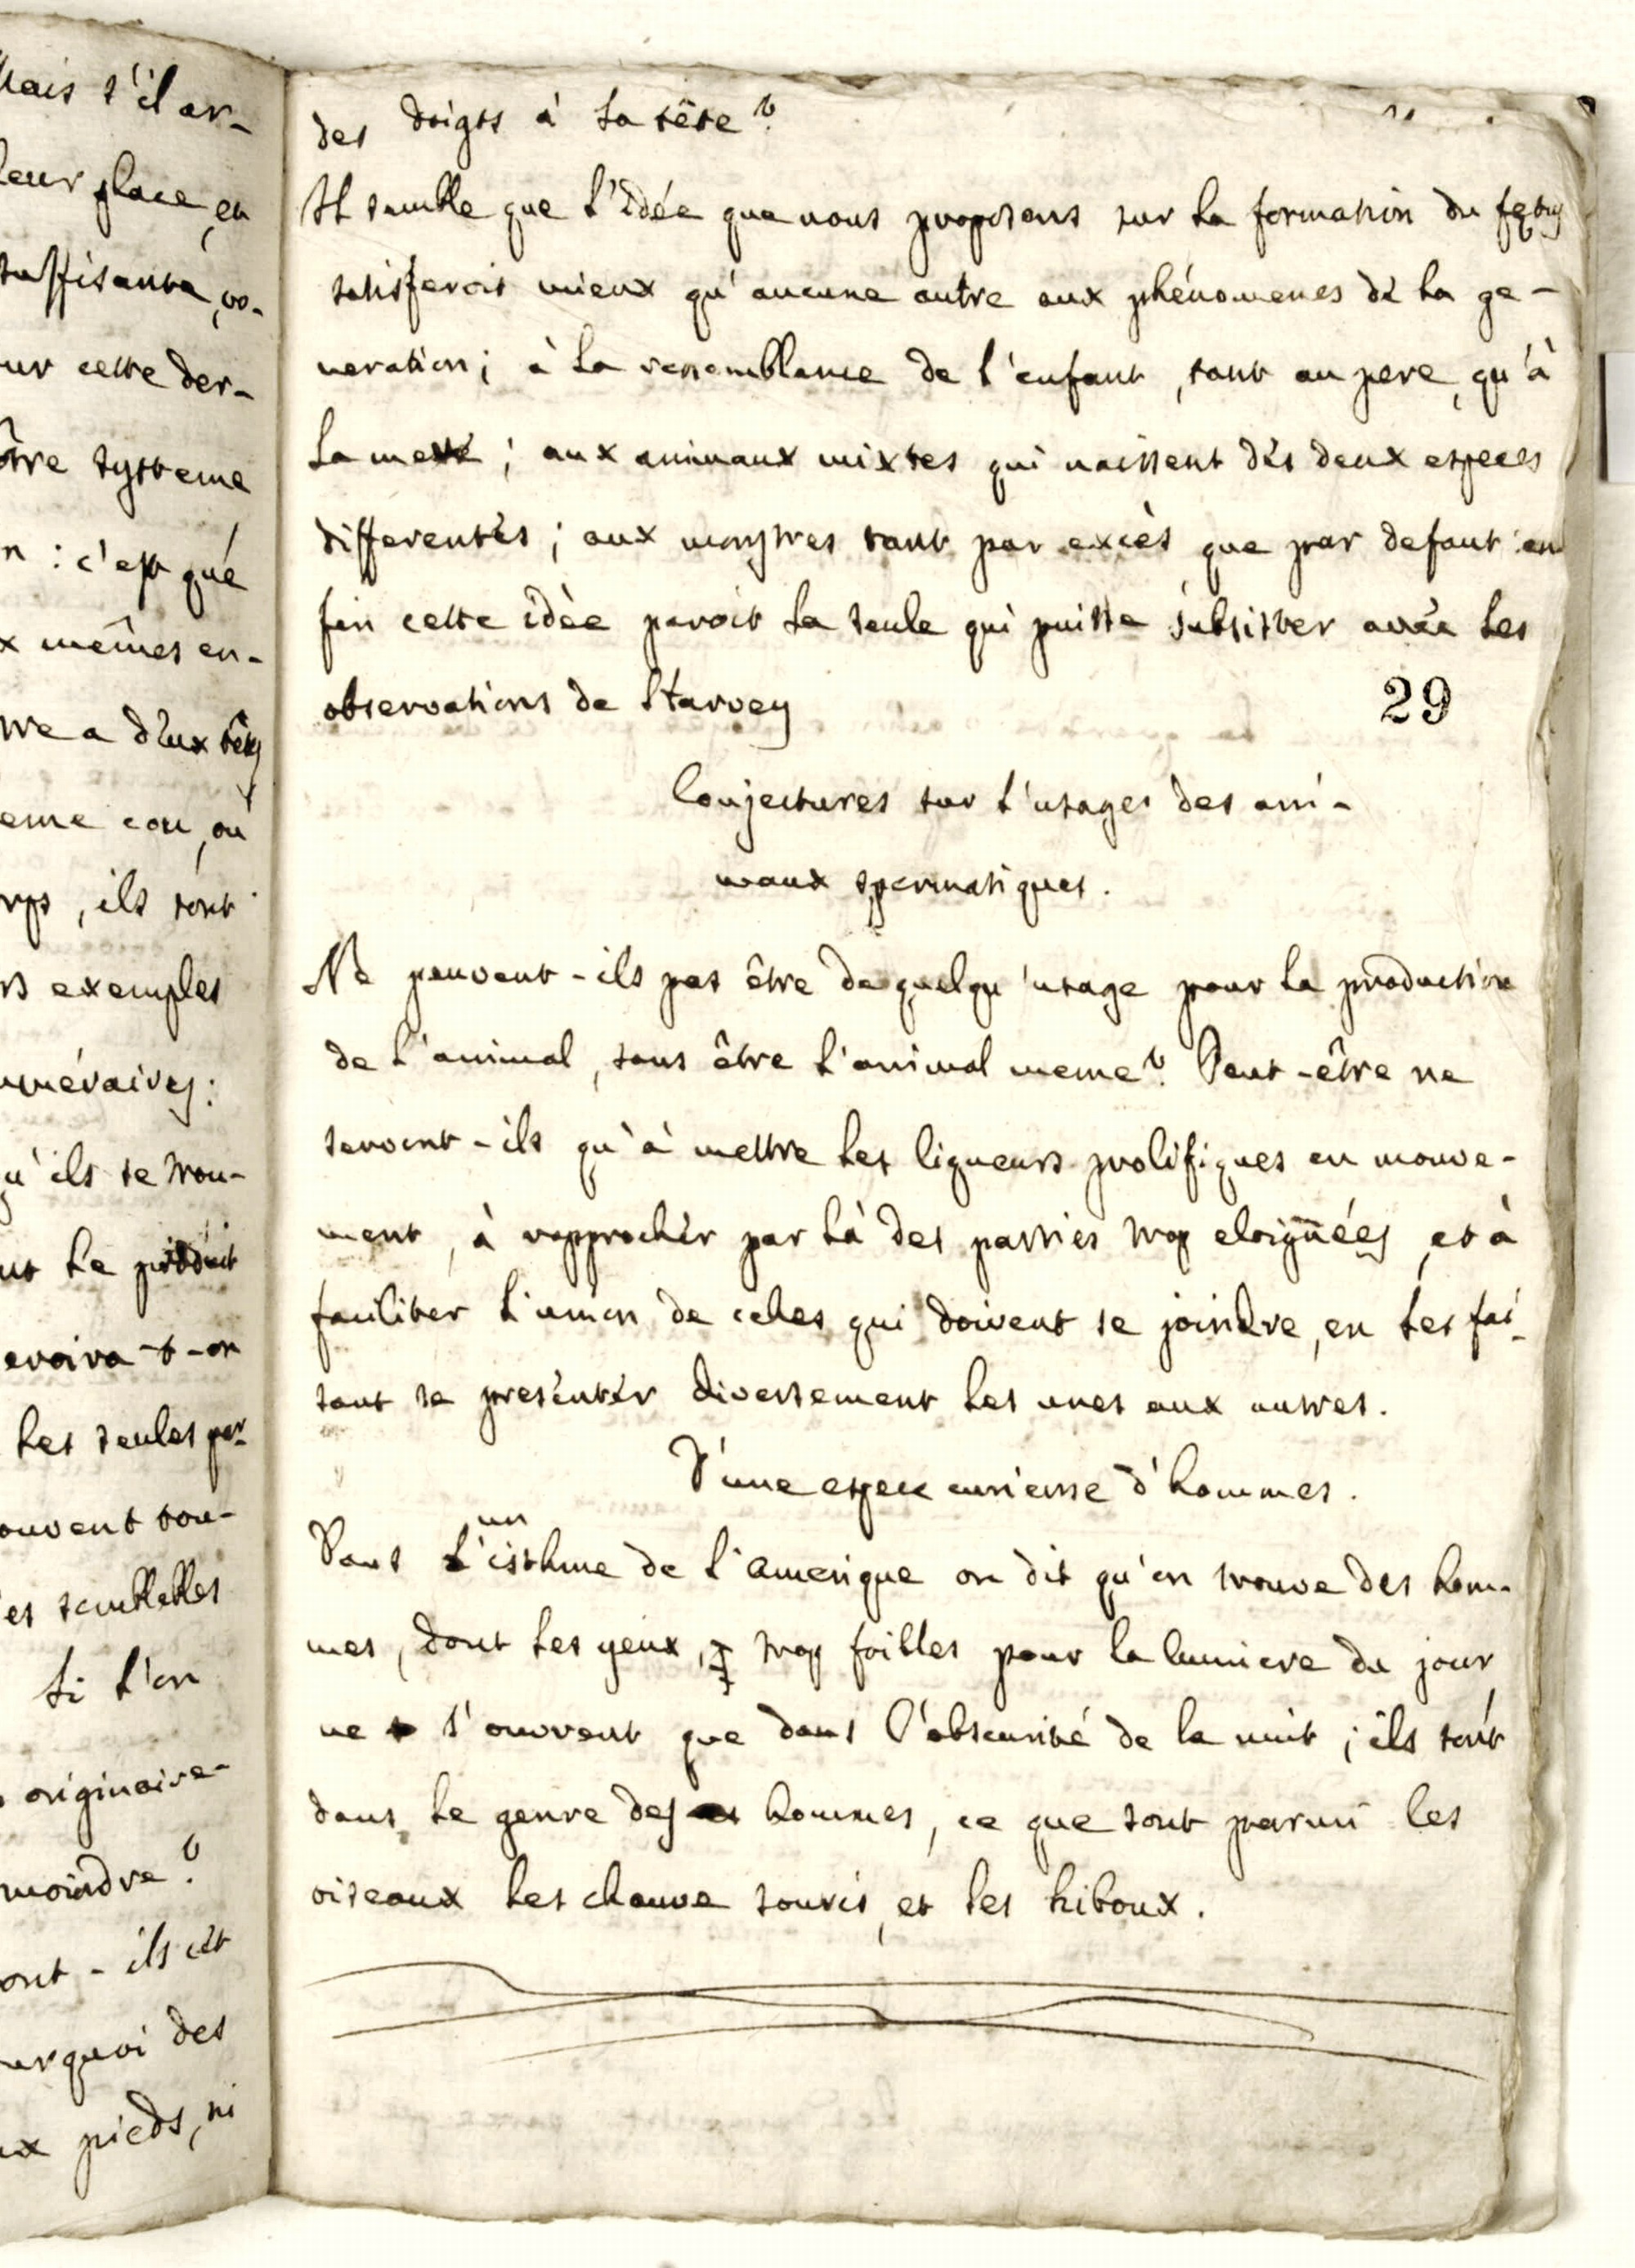 Mais s'il ar-
leur place, en
suffisante, vo-
ur cette der-
ôtre systeme
n : c'est qué
x mêmes en-
tre a deux têtes
eme cou, ou
rps, ils sont
rs exemples
uméraires:
qu'ils se trou-
nt le produit
croira-t-on
les seules par-
ouvent tou-
es semblables
Si l'on
originaire-
moindre?
ont-ils
urquoi des
ux pieds, ni
des doigts à la tête?
Il semble que l'idée que nous proposons sur la formation du fœtus
satisferoit mieux qu'aucune autre aux phénomenes de la ge-
neration; à la ressemblance de l'enfant, tant au pere, qu'à
la mere; aux animaux mixtes qui naissent des deux especes
differentes; aux monstres tant par excès que par defaut: en
fin cette idée paroit la seule qui puisse subsister avec les
observations de Harvey
29
Conjectures sur l'usages des ani-
maux spermatiques.
Ne peuvent-ils pas être de quelqu'usage pour la production
de l'animal, sans être l'animal meme? Peut-être ne
servent-ils qu'à mettre les liqueurs prolifiques en mouve-
ment, à rapprocher par là des parties trop eloignées, et à
faciliter l'union de celles qui doivent se joindre, en les fai-
sant se presenter diversement les unes aux autres.
D'une espece curieuse d'hommes.
un
Dans l'isthme de l'amerique on dit qu'on trouve des hom-
mes, dont les yeux, trop foibles pour la lumiere du jour,
ne s'ouvrent que dans l'obscurité de la nuit; ils sont
dans le genre des hommes, ce que sont parmi les
oiseaux les chauve souris, et les hiboux.